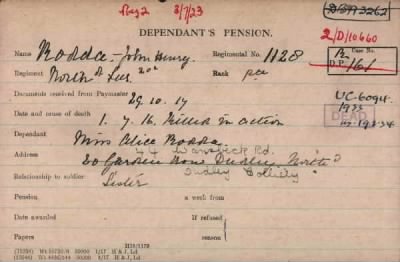 Reg 2 3/7/23
D/399 3262
DEPENDANT'S PENSION.
2/D/10660
Name Rodda - John Henry. Regimental No. 1128
Case No.
D.P. 161
Regiment North'd Fus. 20th Rank pte
Documents received from Paymaster 29.10.17
UC-6094
Date and cause of death 1.7.16. Killed in action
DEAD
Dependant Miss Alice Rodda
Address 44 Warwick Rd.
20 Garden Row Dudley
Dudley Colliery
Relationship to soldier Sister
Pension a week from
Date awarded If refused
Papers reason
H. & J., Ltd.
H. & J., Ltd.